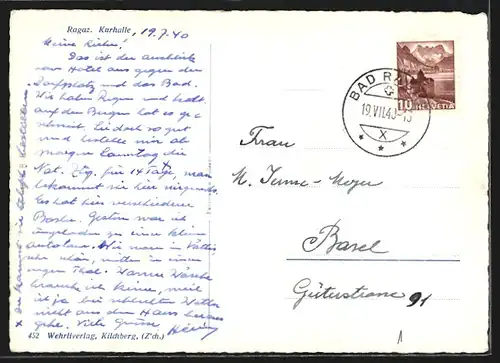 Ragaz. Kurhalle, 19.7.40
Meine Lieben!
Das ist der Ausblick
vom Hotel aus gegen den
Dorfplatz und das Bad.
Wir haben Regen und kalt.
auf den Bergen hat es ge-
schneit. Sei doch so gut
und bestelle mir ab
morgen Samstag die
Nat. Ztg. für 14 Tage, man
bekommt sie hier nirgends.
Es hat hier verschiedene
Basler. Gestern war ich
eingeladen zu einer kleinen
Autotour. Wir waren in Vättis
sehr schön, mitten in einem
engen Thal. Warme Wäsche
brauch ich keine, weil
ich ja bei schlechtem Wetter
nicht aus dem Haus heraus
gehe. Viele Grüsse
452 Wehrliverlag, Kilchberg, (Zch.)
BAD RAGAZ
19.VII.40-15
X
10 HELVETIA
Frau
M. Jenne-Meyer
Basel
Güterstrasse 91
1